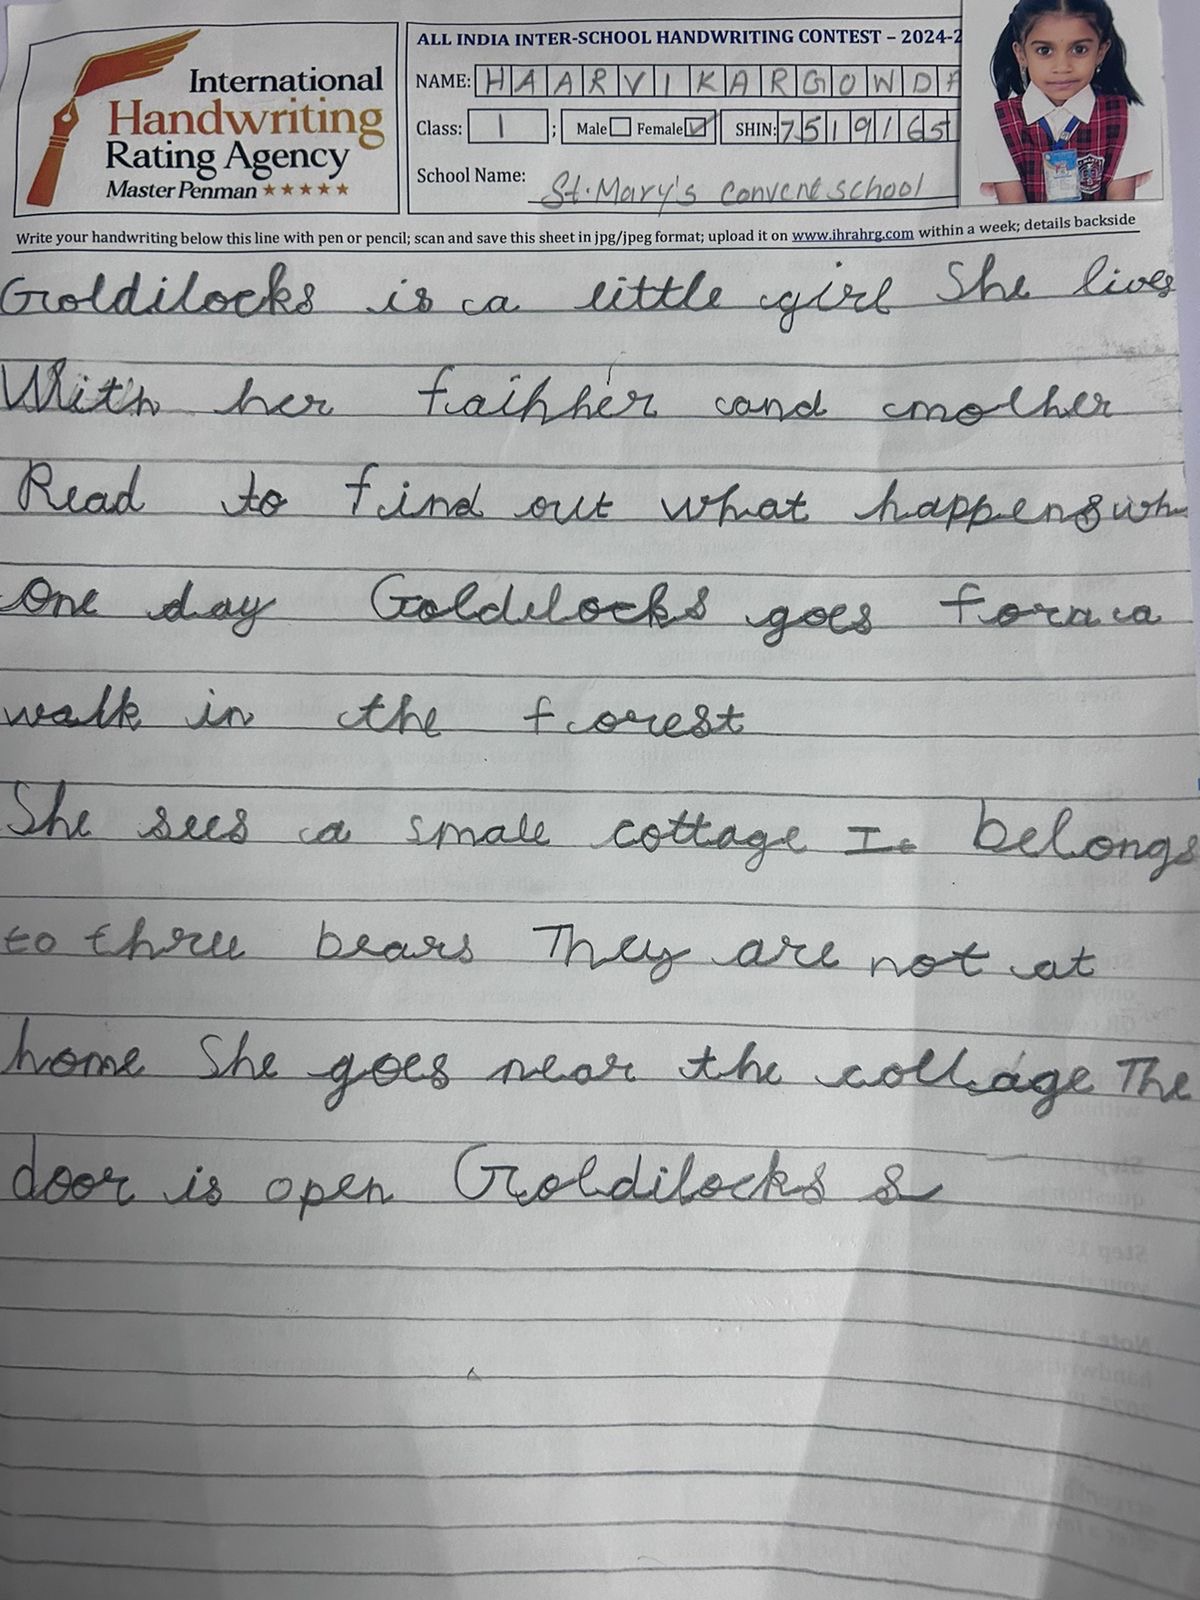 International
Handwriting
Rating Agency
Master Penman
ALL INDIA INTER-SCHOOL HANDWRITING CONTEST – 2024-2
NAME: HAARVIKARGOWDA
Class: 1 ; Male Female SHIN: 7519165
School Name: St. Mary's convent school
Write your handwriting below this line with pen or pencil; scan and save this sheet in jpg/jpeg format; upload it on www.ihrahrg.com within a week; details backside
Goldilocks is a little girl She lives
With her faihher and mother
Read to find out what happens wh
One day Goldilocks goes for a
walk in the forest
She sees a small cottage It belongs
to three bears They are not at
home She goes near the cottage The
door is open Goldilocks s